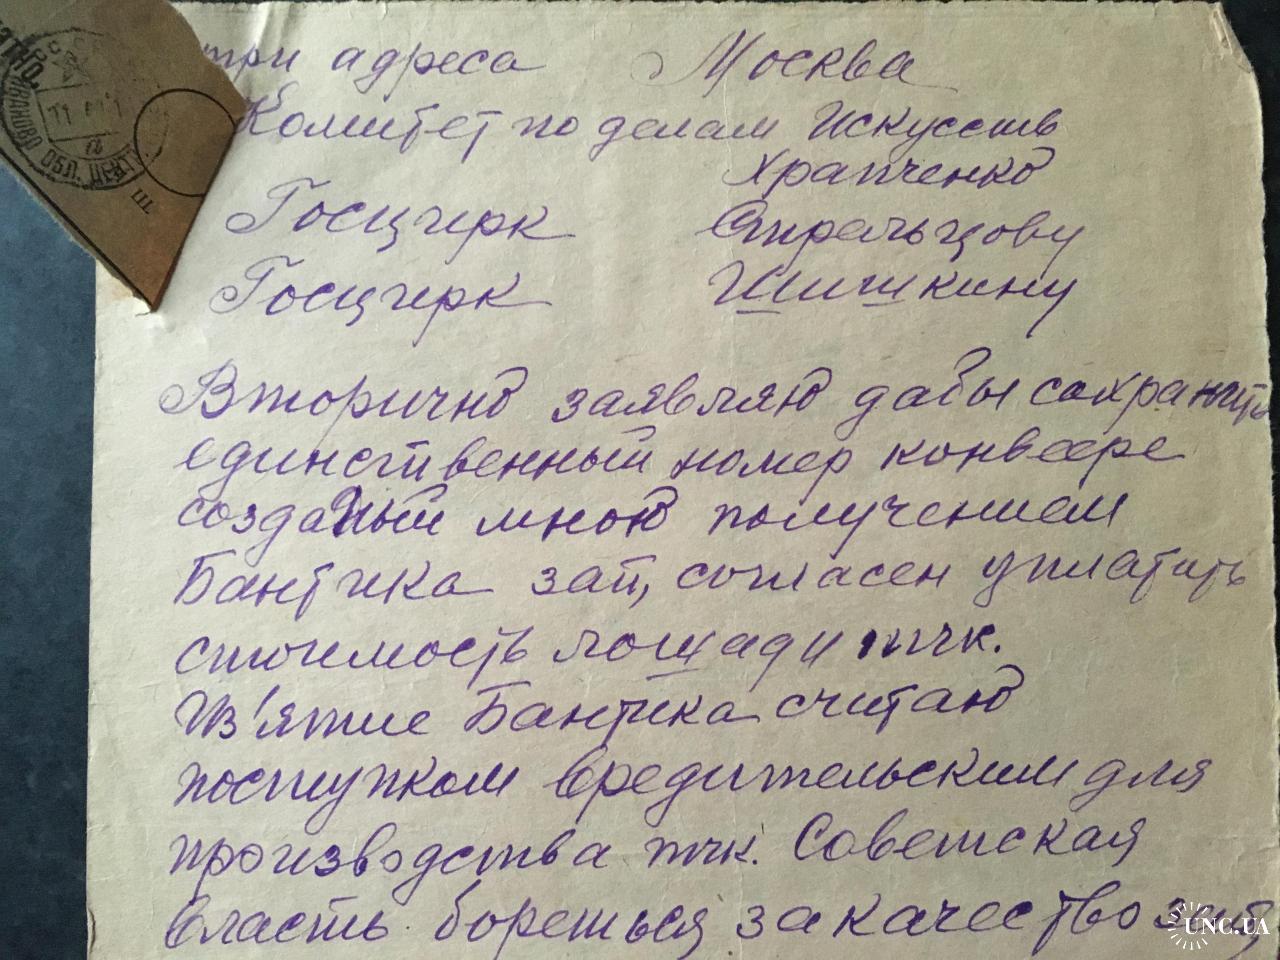 три адреса Москва
Комитет по делам Искусств
Храпченко
Госцирк Стрельцову
Госцирк Шишкину
Вторично заявляю дабы сохранить
единственный номер конвеере
созданый мною получением
Бантика зап, согласен уплатить
стоимость лошади тчк.
Из'ятие Бантика считаю
поступком вредительским для
производства тчк. Советская
власть бореться за качество зап,
ИВАНОВО ОБЛ.
III
UNC.UA